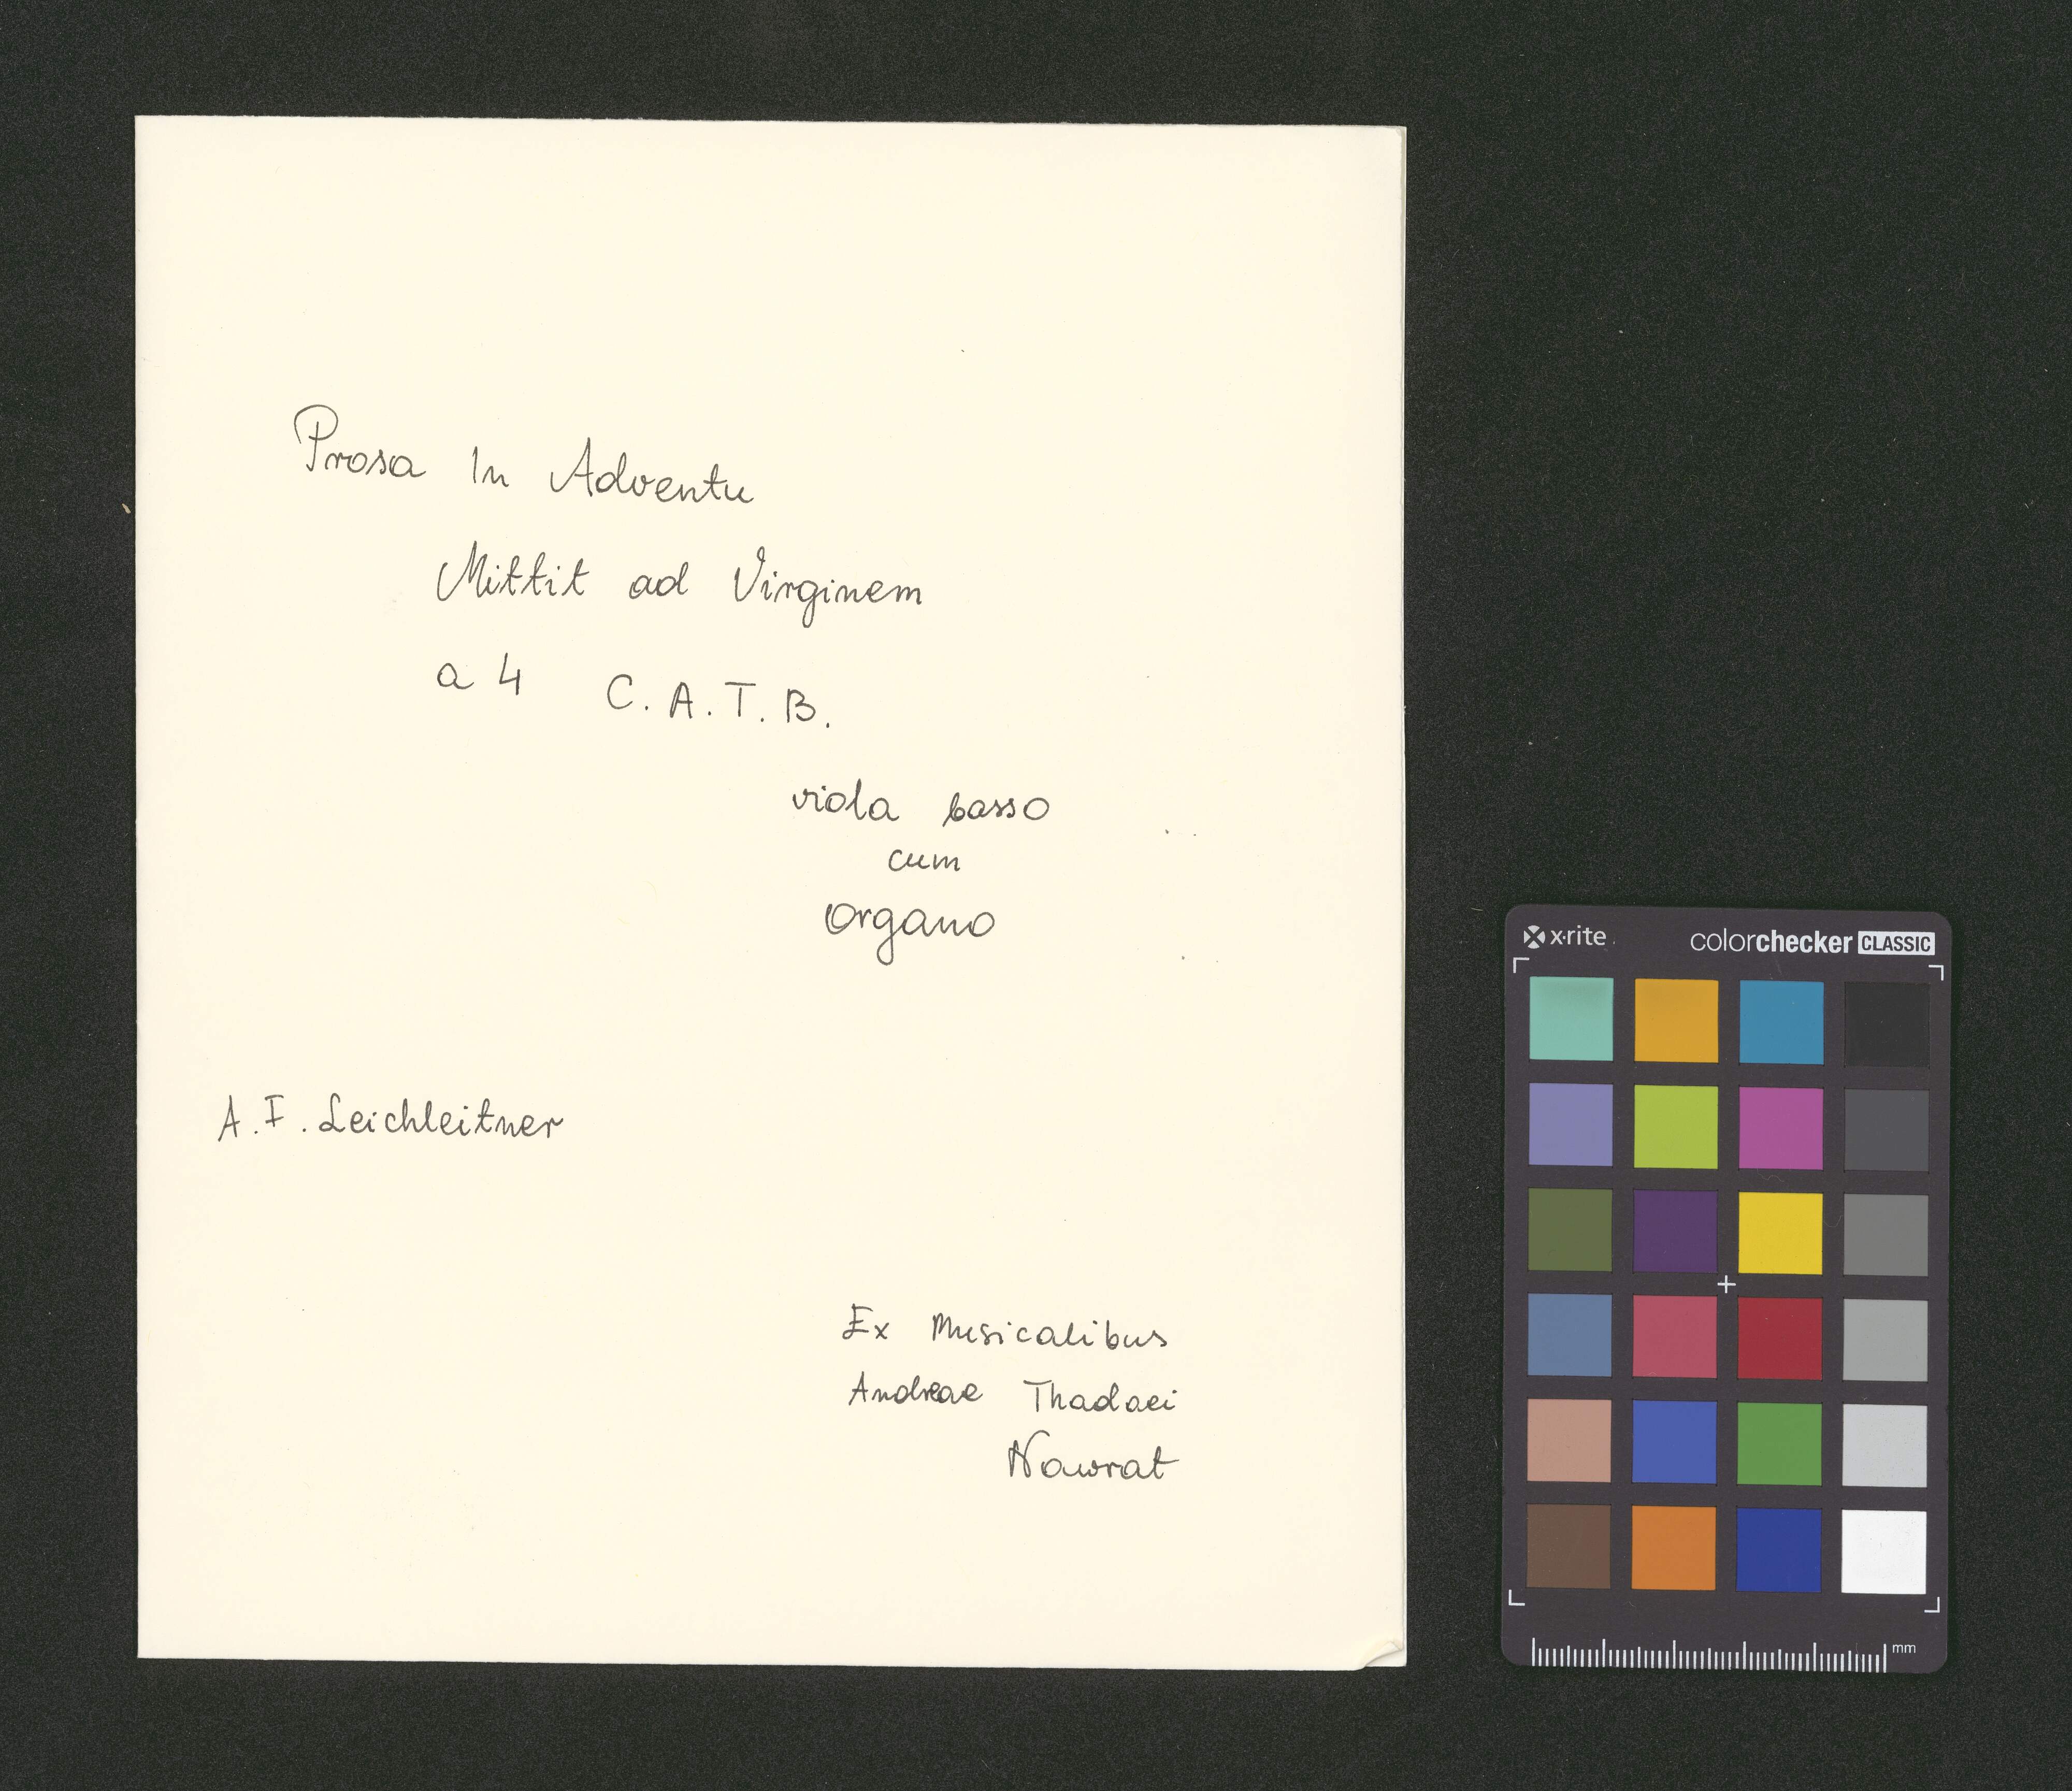 Prosa In Adventu
Mittit ad Virginem
a 4 C. A. T. B.
viola basso
cum
Organo
A. F. Leichleitner
Ex Musicalibus
Andreae Thadaei
Nawrat
x·rite
colorchecker CLASSIC
mm